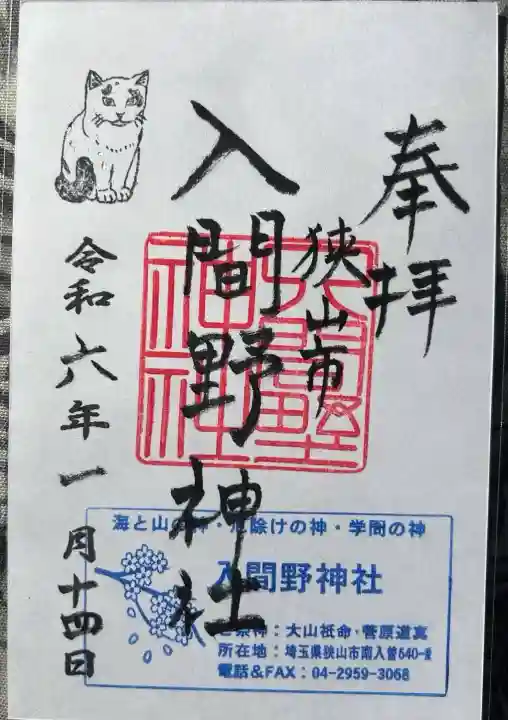 奉拝
狭山市
入間野神社
令和六年一月十四日
入間野神社
海と山の神・厄除けの神・学問の神
入間野神社
ご祭神：大山祇命・菅原道真
所在地：埼玉県狭山市南入曽640-2
電話＆FAX：04-2959-3068